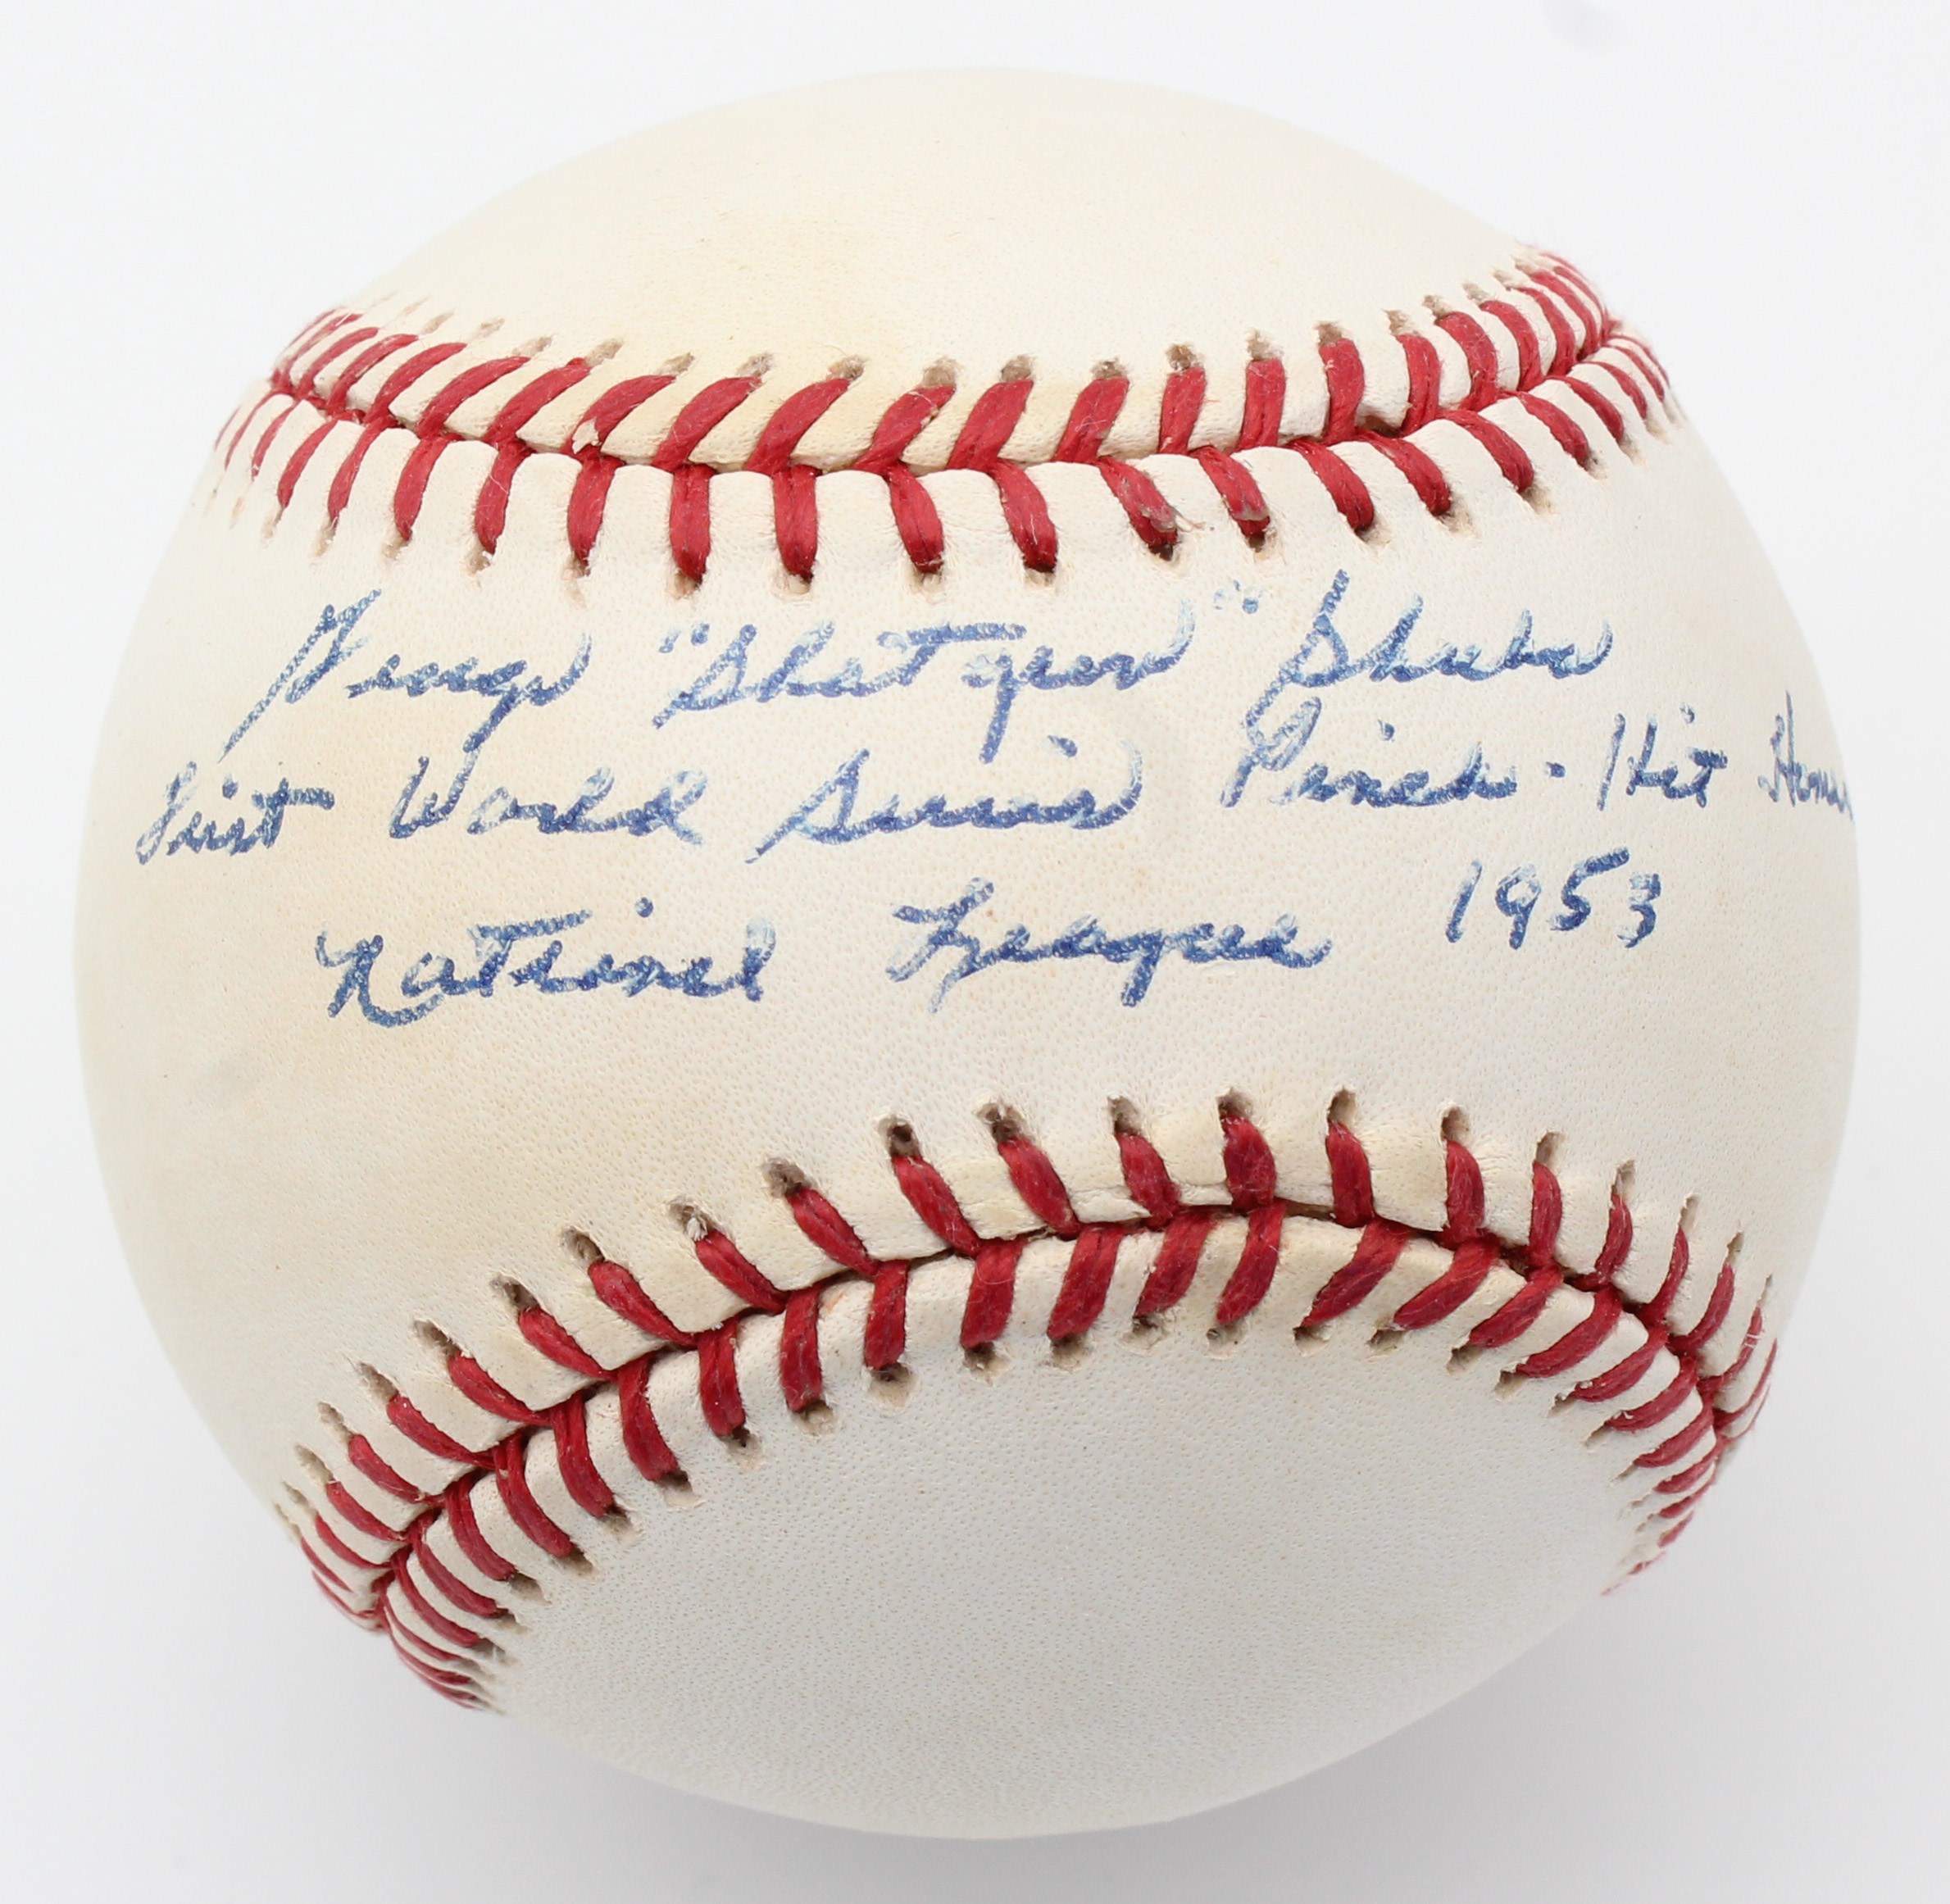 George "Shotgun" Shuba
First World Series Pinch-Hit Homer
National League 1953